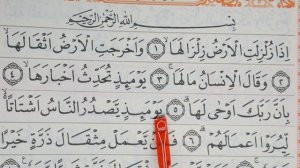 بِسْمِ اللّٰهِ الرَّحْمٰنِ الرَّحِيْمِ
اِذَا زُلْزِلَتِ الْاَرْضُ زِلْزَالَهَا ۝١ وَاَخْرَجَتِ الْاَرْضُ اَثْقَالَهَا
۝٢ وَقَالَ الْاِنْسَانُ مَالَهَا ۝٣ يَوْمَئِذٍ تُحَدِّثُ اَخْبَارَهَا ۝٤
بِاَنَّ رَبَّكَ اَوْحٰى لَهَا ۝٥ يَوْمَئِذٍ يَّصْدُرُ النَّاسُ اَشْتَاتًا
لِّيُرَوْا اَعْمَالَهُمْ ۝٦ يَّعْمَلْ مِثْقَالَ ذَرَّةٍ خَيْرًا